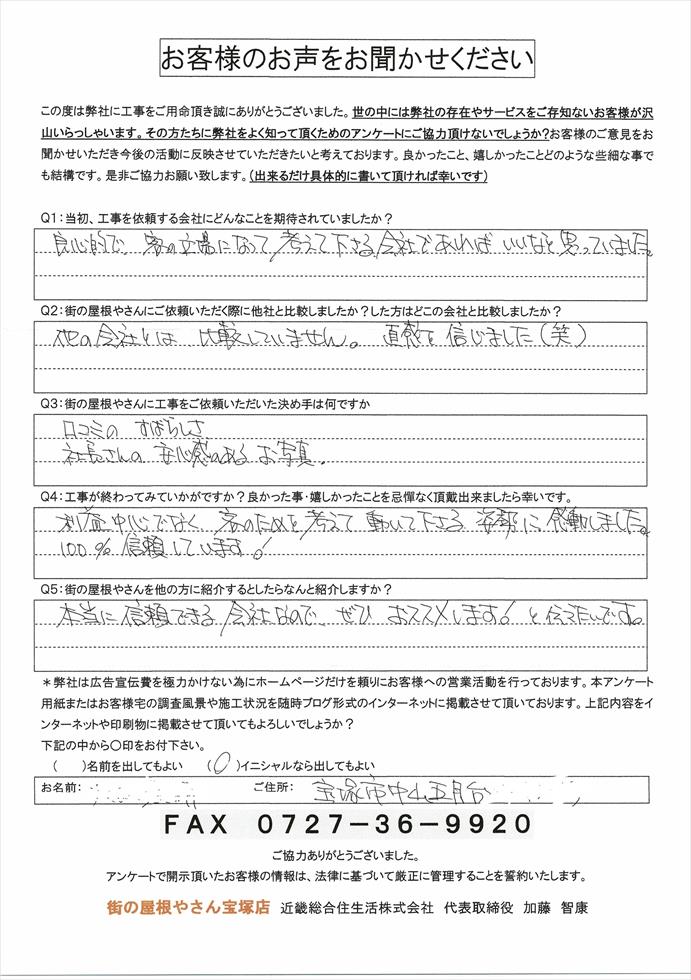 お客様のお声をお聞かせください
この度は弊社に工事をご用命頂き誠にありがとうございました。世の中には弊社の存在やサービスをご存知ないお客様が沢
山いらっしゃいます。その方たちに弊社をよく知って頂くためのアンケートにご協力頂けないでしょうか?お客様のご意見をお
聞かせいただき今後の活動に反映させていただきたいと考えております。良かったこと、嬉しかったことどのような些細な事で
も結構です。是非ご協力お願い致します。(出来るだけ具体的に書いて頂ければ幸いです)
Q1:当初、工事を依頼する会社にどんなことを期待されていましたか?
良心的で、客の立場になって考えて下さる会社であればいいなと思っていました。
Q2:街の屋根やさんにご依頼いただく際に他社と比較しましたか?した方はどこの会社と比較しましたか?
他の会社とは 比較していません。 直感を信じました(笑)
Q3:街の屋根やさんに工事をご依頼いただいた決め手は何ですか
口コミの すばらしさ
社長さんの 安心感のある お写真.
Q4:工事が終わってみていかがですか?良かった事・嬉しかったことを忌憚なく頂戴出来ましたら幸いです。
利益中心でなく、客のためを考えて動いて下さる姿勢に感動しました。
100%信頼しています!
Q5:街の屋根やさんを他の方に紹介するとしたらなんと紹介しますか?
本当に信頼できる会社なので、ぜひ おススメします!と伝えたいです。
*弊社は広告宣伝費を極力かけない為にホームページだけを頼りにお客様への営業活動を行っております。本アンケート
用紙またはお客様宅の調査風景や施工状況を随時ブログ形式のインターネットに掲載させて頂いております。上記内容をイ
ンターネットや印刷物に掲載させて頂いてもよろしいでしょうか?
下記の中から〇印をお付下さい。
( )名前を出してもよい (〇)イニシャルなら出してもよい
お名前: ご住所: 宝塚市中山五月台
FAX 0727-36-9920
ご協力ありがとうございました。
アンケートで開示頂いたお客様の情報は、法律に基づいて厳正に管理することを誓約いたします。
街の屋根やさん宝塚店 近畿総合住生活株式会社 代表取締役 加藤 智康